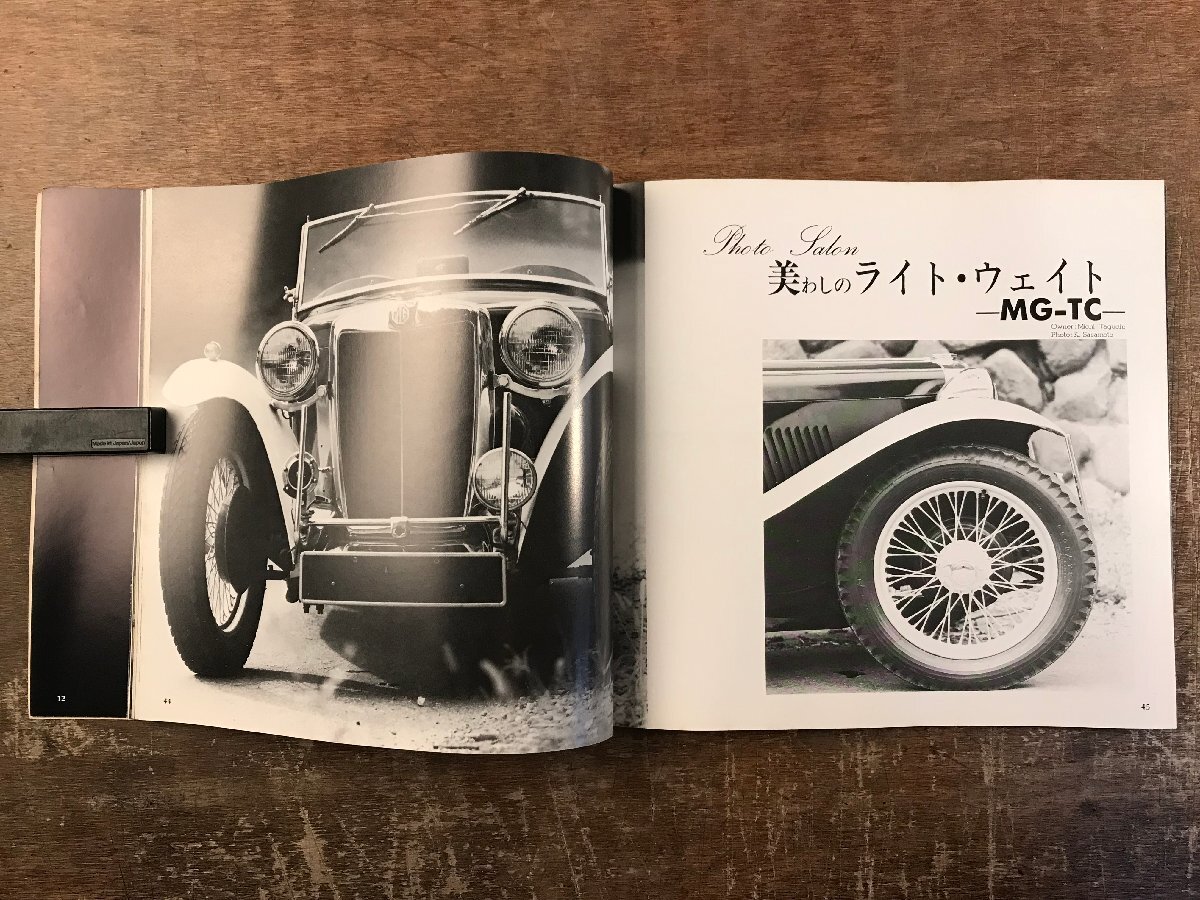 Made in Japan/Japon
12
44
MG
Photo Salon
美わしのライト・ウェイト
—MG-TC—
Photo: K. Sakamoto
45